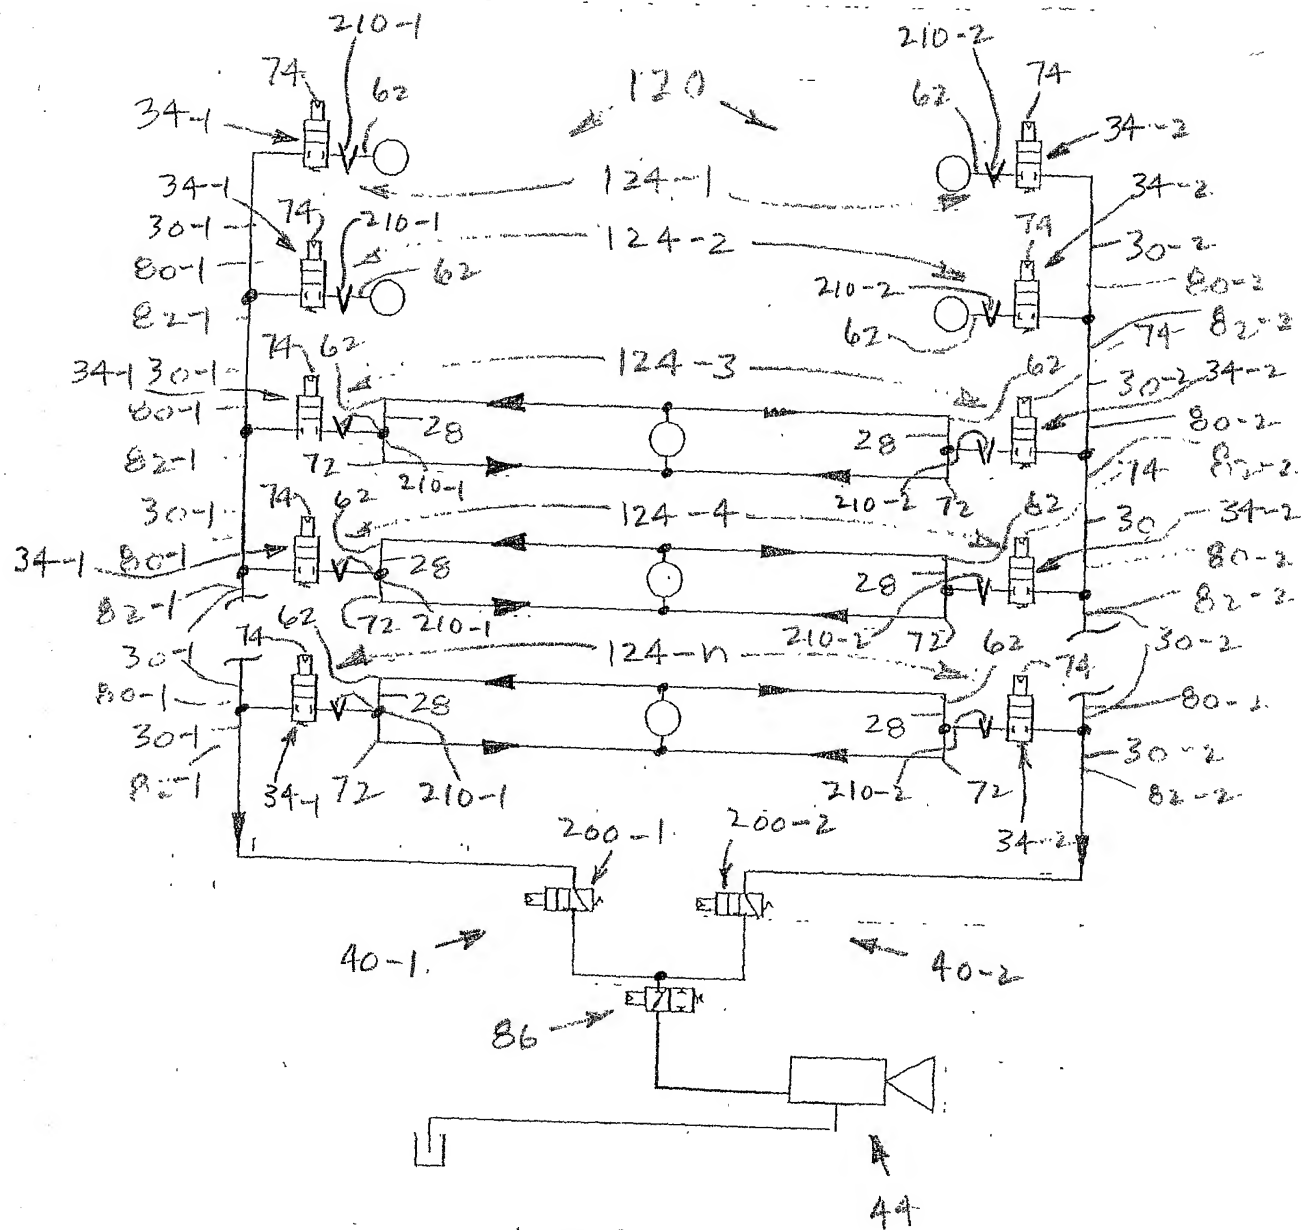 210-1
210-2
74
62
120
62
74
34-1
34-2
34-1
124-1
34-2
30-1
74
210-1
124-2
74
30-2
80-1
62
210-2
80-2
82-1
62
74
82-2
74
62
124-3
62
34-1
30-1
30-2
34-2
80-1
28
28
80-2
82-1
72
210-1
210-2
72
74
82-2
30-1
74
62
124-4
62
30
34-2
34-1
80-1
28
28
80-2
82-1
62
72
210-1
210-2
72
82-2
30-1
74
124-n
62
74
30-2
80-1
28
28
80-2
30-1
30-2
82-1
34-1
72
210-1
210-2
72
82-2
200-1
200-2
34-2
40-1
40-2
86
44